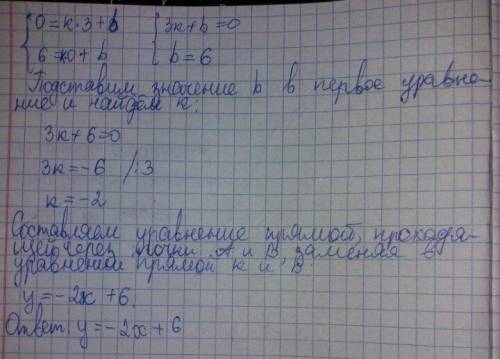 {0=к·3+b {3к+b=0
{6=к0+b {b=6
Подставим значение b в первое уравне-
ние и найдём к:
3к+6=0
3к=-6 /:3
к=-2
Составляем уравнение прямой, проходя-
щей через точки A и B, заменяя в
уравнении прямой к и B:
y=-2x+6.
Ответ: y=-2x+6